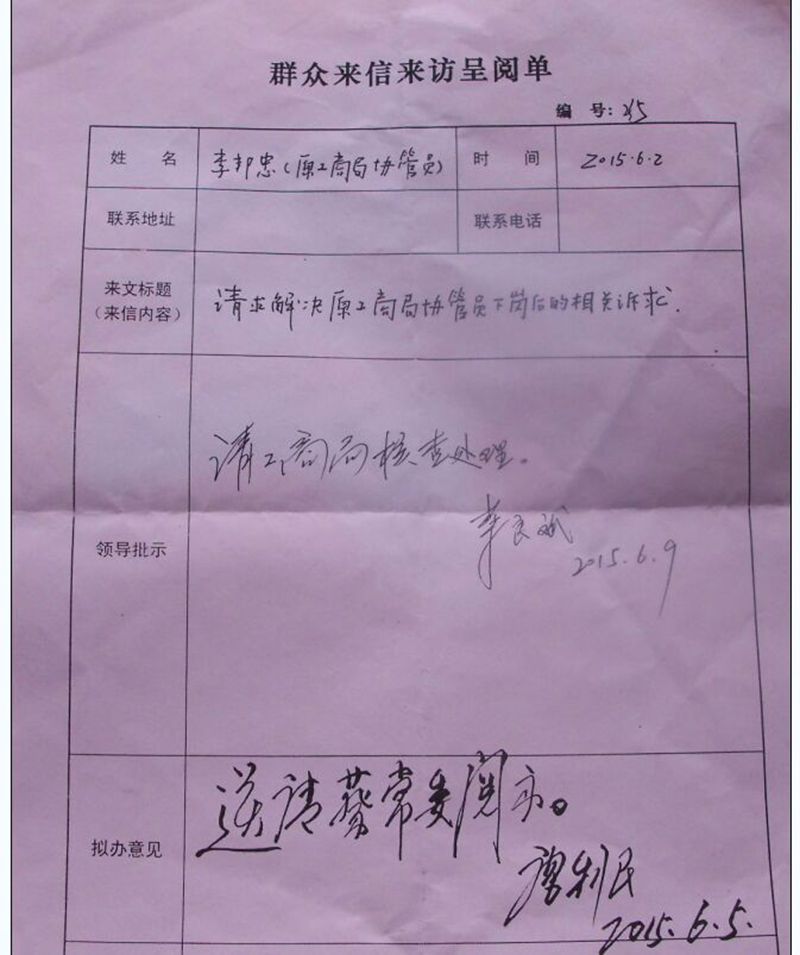 群众来信来访呈阅单
编 号:
姓 名 李邦忠(原工商局协管员) 时 间 2015.6.2
联系地址 联系电话
来文标题 请求解决原工商局协管员下岗后的相关诉求.
(来信内容)
请工商局核查处理。
领导批示
2015.6.9
送请蔡常委阅示。
拟办意见
利民
2015.6.5.